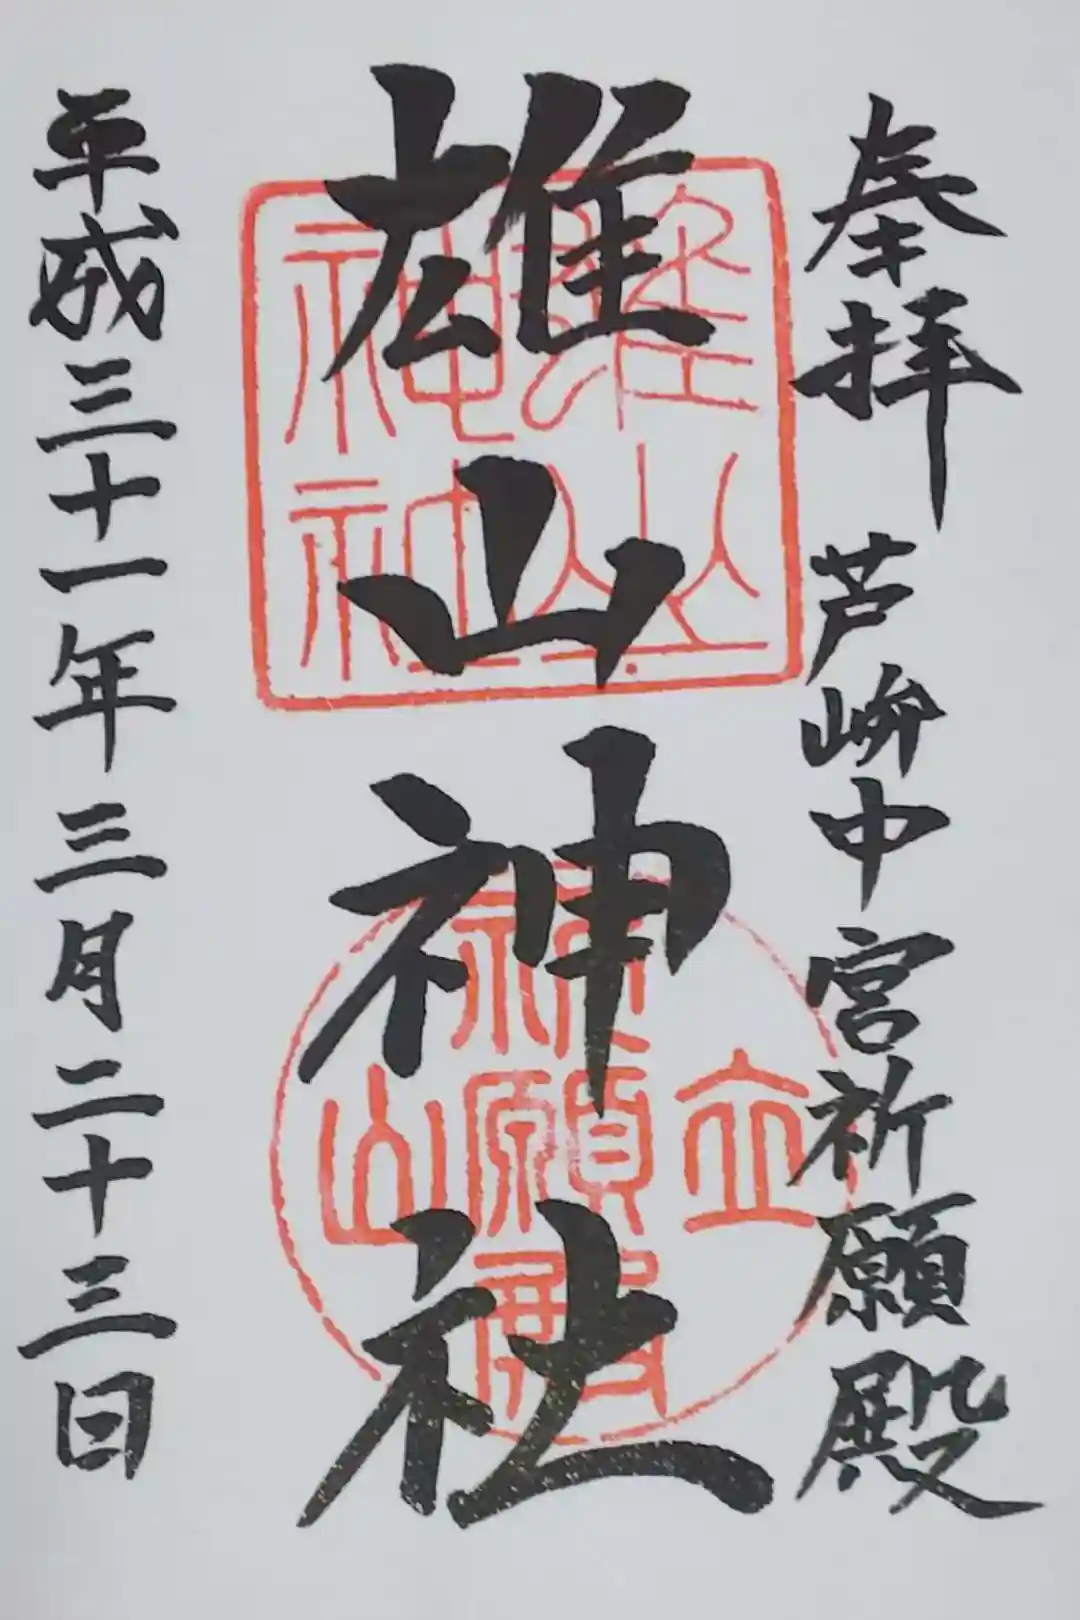 奉拝 芦峅中宮祈願殿
雄山神社
平成三十一年三月二十三日
雄山
神社
立山
祈願殿